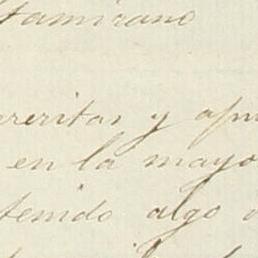 tamirano
rreritas y apr
en la mayo
tenido algo